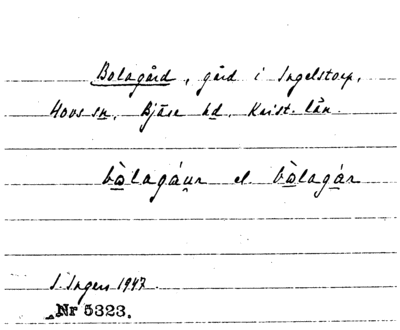 Bolagård, gård i Ingelstorp,
Hovs sn, Bjäre hd, Krist. län.
bò̱lagáṷr el. bò̱lagá̱r
I. Ingers 1947.
Nr 5323.